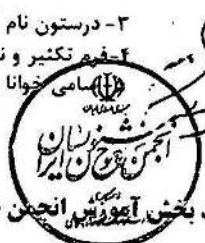 ۳- درستون نام
۴- فرم تکثیر و ن
اسامی خوانا
انجمن خوشنویسان ایران
بخش آموزش انجمن